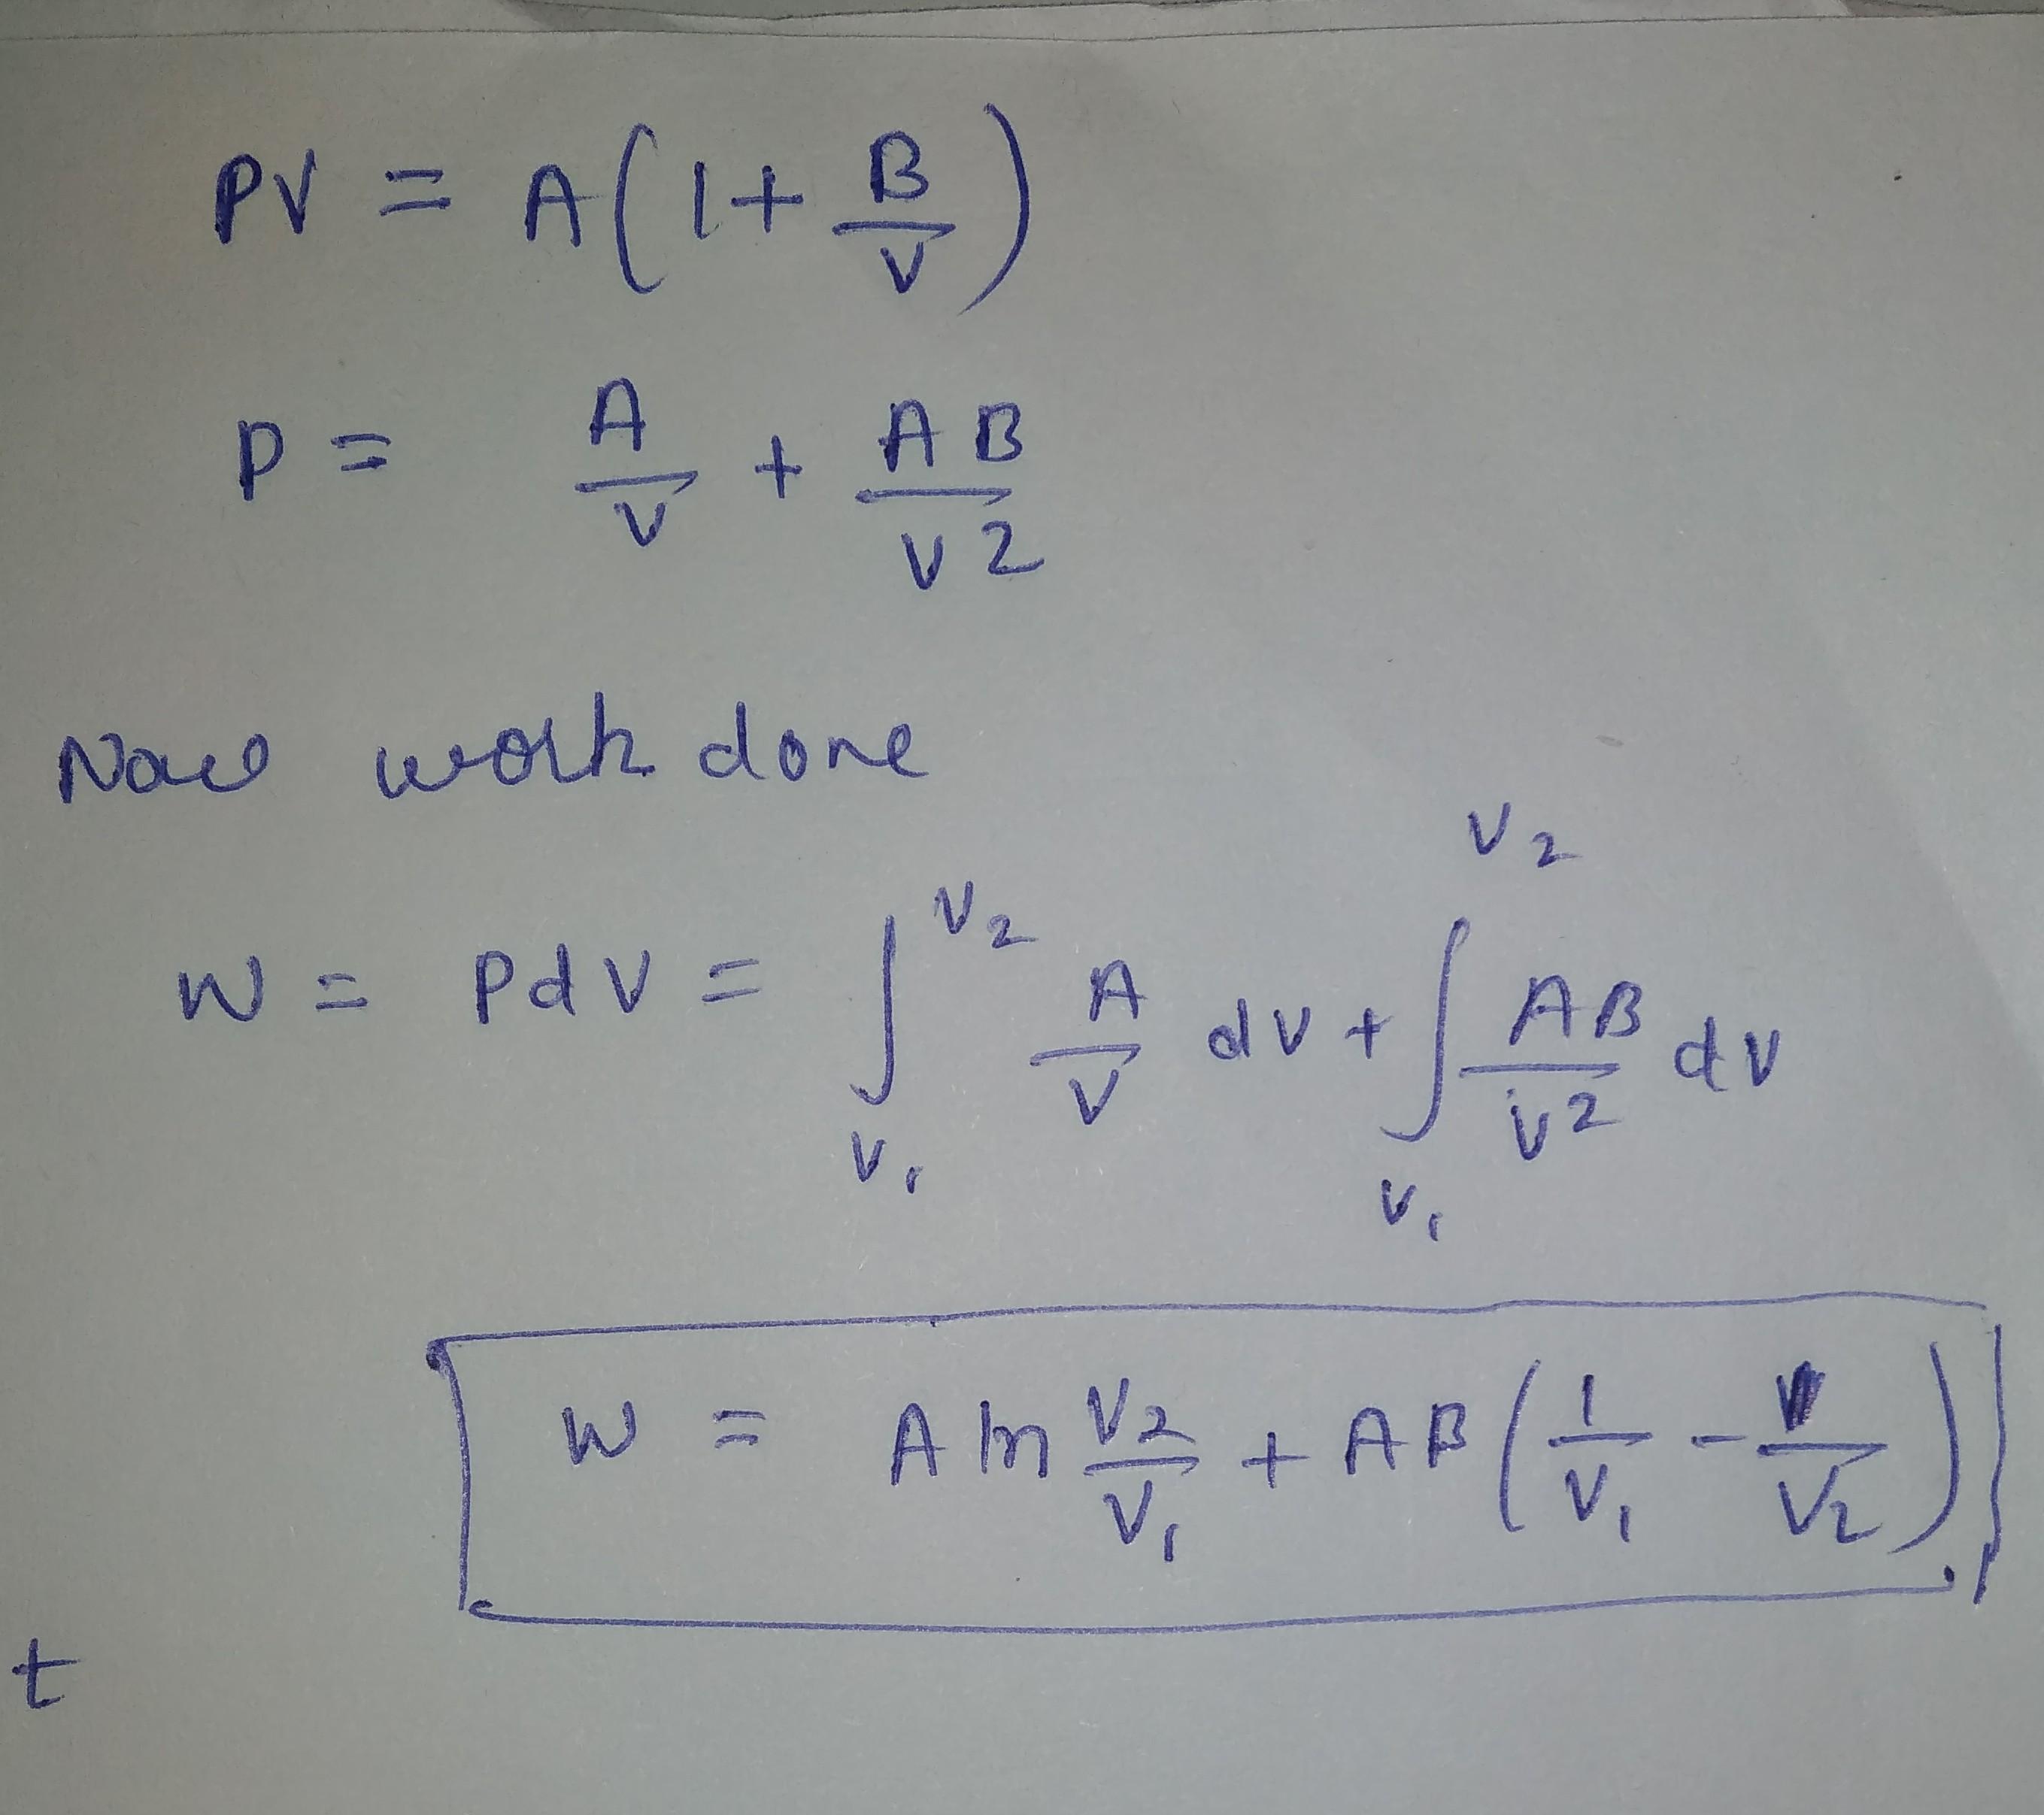 PV = A(1 + B/V)
P = A/V + AB/V2
Now work done
W = PdV = ∫_{V1}^{V2} A/V dv + ∫_{V1}^{V2} AB/V2 dv
W = A ln V2/V1 + AB(1/V1 - 1/V2)
t